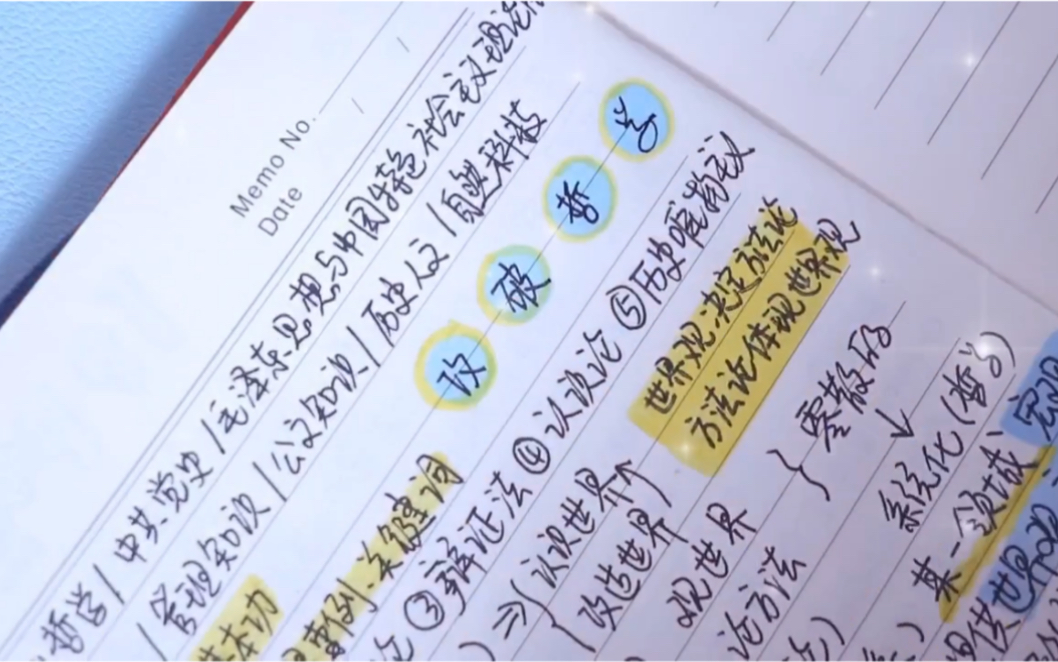 Memo No.
Date
哲学 / 中共党史 / 毛泽东思想与中国特色社会主义理论
/ 管理知识 / 公文知识 / 历史人文 / 自然科技
基本功
事例、关键词
论 ③辩证法 ④认识论 ⑤历史唯物主义
⇒ { 认识世界
改造世界
世界观决定方法论
方法论体现世界观
观世界
论方法
} 零散的
↓
系统化 (哲学)
某一领域、
提供世界观